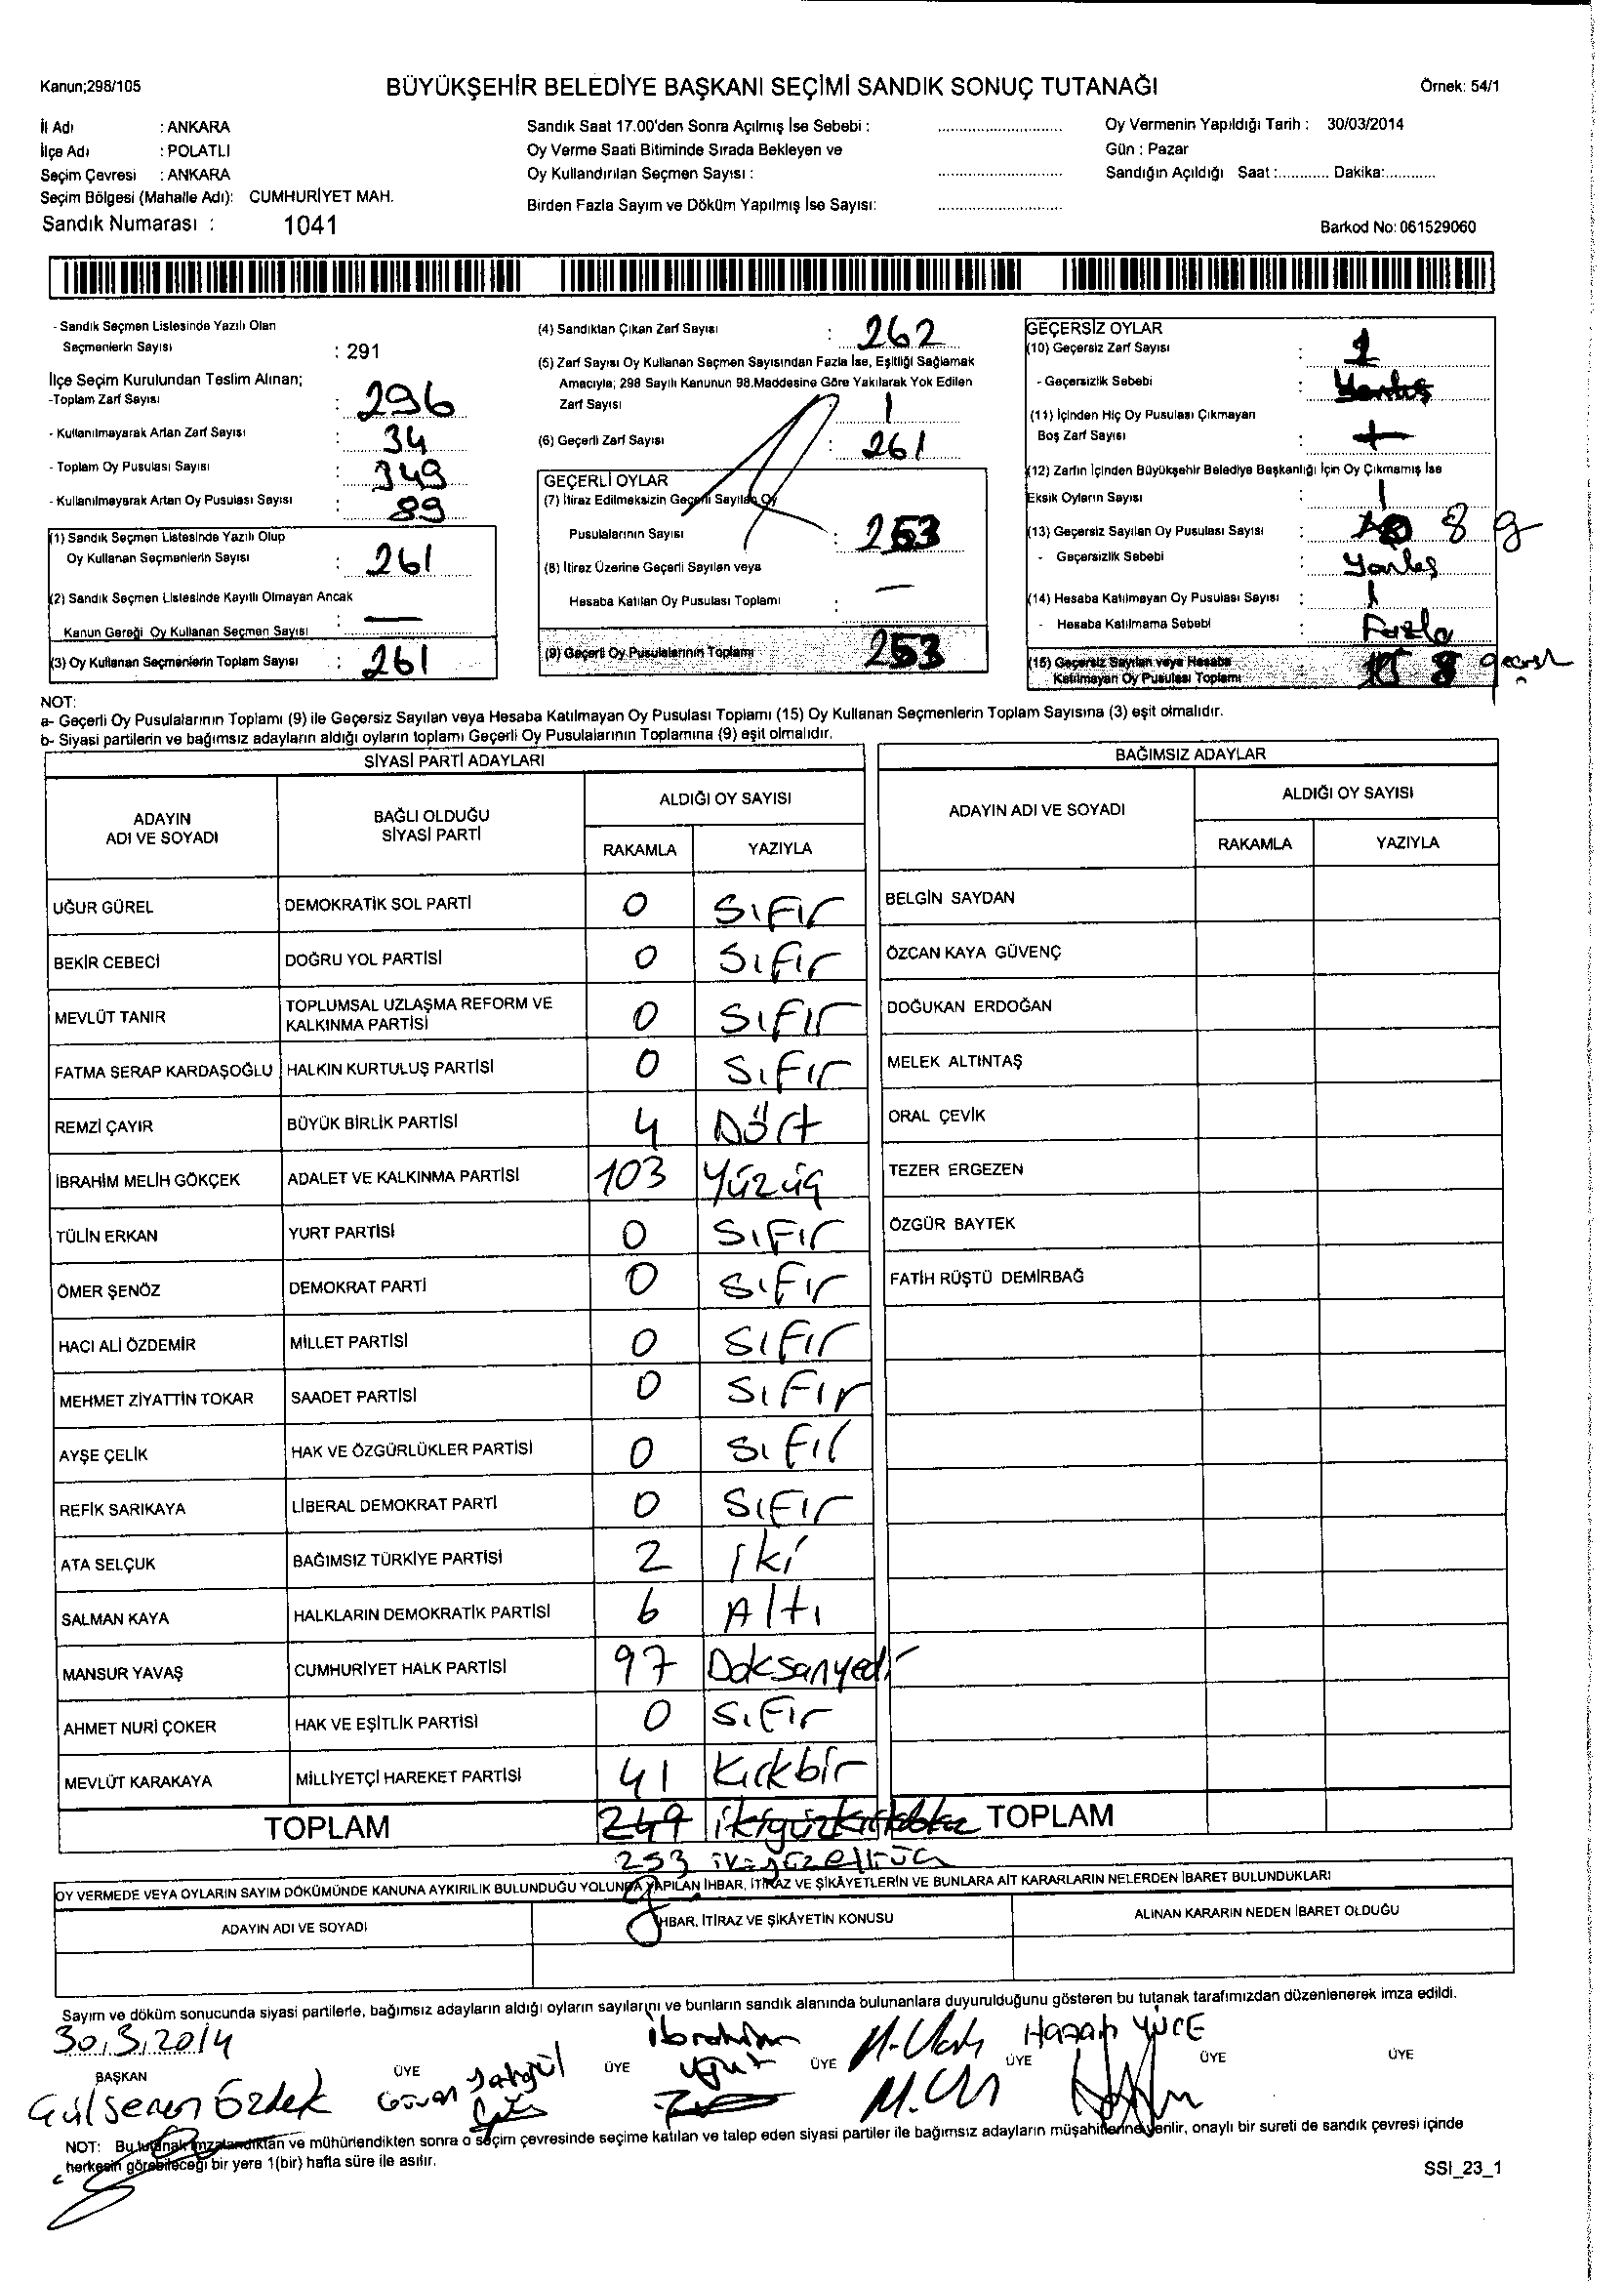 Kanun;298/105
BÜYÜKŞEHİR BELEDİYE BAŞKANI SEÇİMİ SANDIK SONUÇ TUTANAĞI
Örnek: 54/1
İl Adı : ANKARA
İlçe Adı : POLATLI
Seçim Çevresi : ANKARA
Seçim Bölgesi (Mahalle Adı): CUMHURİYET MAH.
Sandık Numarası : 1041
Sandık Saat 17.00'den Sonra Açılmış İse Sebebi :
Oy Verme Saati Bitiminde Sırada Bekleyen ve
Oy Kullandırılan Seçmen Sayısı :
Birden Fazla Sayım ve Döküm Yapılmış İse Sayısı:
Oy Vermenin Yapıldığı Tarih : 30/03/2014
Gün : Pazar
Sandığın Açıldığı Saat :............ Dakika:............
Barkod No: 061529060
- Sandık Seçmen Listesinde Yazılı Olan
Seçmenlerin Sayısı : 291
İlçe Seçim Kurulundan Teslim Alınan;
-Toplam Zarf Sayısı : 296
- Kullanılmayarak Artan Zarf Sayısı : 34
- Toplam Oy Pusulası Sayısı : 349
- Kullanılmayarak Artan Oy Pusulası Sayısı : 89
(1) Sandık Seçmen Listesinde Yazılı Olup
Oy Kullanan Seçmenlerin Sayısı : 261
(2) Sandık Seçmen Listesinde Kayıtlı Olmayan Ancak
Kanun Gereği Oy Kullanan Seçmen Sayısı : —
(3) Oy Kullanan Seçmenlerin Toplam Sayısı : 261
(4) Sandıktan Çıkan Zarf Sayısı : 262
(5) Zarf Sayısı Oy Kullanan Seçmen Sayısından Fazla İse, Eşitliği Sağlamak
Amacıyla; 298 Sayılı Kanunun 98.Maddesine Göre Yakılarak Yok Edilen
Zarf Sayısı : 1
(6) Geçerli Zarf Sayısı : 261
GEÇERLİ OYLAR
(7) İtiraz Edilmeksizin Geçerli Sayılan Oy
Pusulalarının Sayısı : 253
(8) İtiraz Üzerine Geçerli Sayılan veya
Hesaba Katılan Oy Pusulası Toplamı : —
(9) Geçerli Oy Pusulalarının Toplamı : 253
GEÇERSİZ OYLAR
(10) Geçersiz Zarf Sayısı : 1
- Geçersizlik Sebebi : Yanlış
(11) İçinden Hiç Oy Pusulası Çıkmayan
Boş Zarf Sayısı :
(12) Zarfın İçinden Büyükşehir Belediye Başkanlığı İçin Oy Çıkmamış İse
Eksik Oyların Sayısı : 1
(13) Geçersiz Sayılan Oy Pusulası Sayısı : 8
- Geçersizlik Sebebi : Yanlış
(14) Hesaba Katılmayan Oy Pusulası Sayısı : 1
- Hesaba Katılmama Sebebi : Fazla
(15) Geçersiz Sayılan veya Hesaba
Katılmayan Oy Pusulası Toplamı : 8
NOT:
a- Geçerli Oy Pusulalarının Toplamı (9) ile Geçersiz Sayılan veya Hesaba Katılmayan Oy Pusulası Toplamı (15) Oy Kullanan Seçmenlerin Toplam Sayısına (3) eşit olmalıdır.
b- Siyasi partilerin ve bağımsız adayların aldığı oyların toplamı Geçerli Oy Pusulalarının Toplamına (9) eşit olmalıdır.
SİYASİ PARTİ ADAYLARI
ADAYIN ADI VE SOYADI BAĞLI OLDUĞU SİYASİ PARTİ ALDIĞI OY SAYISI
RAKAMLA YAZIYLA
UĞUR GÜREL DEMOKRATİK SOL PARTİ 0 Sıfır
BEKİR CEBECİ DOĞRU YOL PARTİSİ 0 Sıfır
MEVLÜT TANIR TOPLUMSAL UZLAŞMA REFORM VE KALKINMA PARTİSİ 0 Sıfır
FATMA SERAP KARDAŞOĞLU HALKIN KURTULUŞ PARTİSİ 0 Sıfır
REMZİ ÇAYIR BÜYÜK BİRLİK PARTİSİ 4 Dört
İBRAHİM MELİH GÖKÇEK ADALET VE KALKINMA PARTİSİ 103 Yüzüç
TÜLİN ERKAN YURT PARTİSİ 0 Sıfır
ÖMER ŞENÖZ DEMOKRAT PARTİ 0 Sıfır
HACI ALİ ÖZDEMİR MİLLET PARTİSİ 0 Sıfır
MEHMET ZİYATTİN TOKAR SAADET PARTİSİ 0 Sıfır
AYŞE ÇELİK HAK VE ÖZGÜRLÜKLER PARTİSİ 0 Sıfır
REFİK SARIKAYA LİBERAL DEMOKRAT PARTİ 0 Sıfır
ATA SELÇUK BAĞIMSIZ TÜRKİYE PARTİSİ 2 iki
SALMAN KAYA HALKLARIN DEMOKRATİK PARTİSİ 6 Altı
MANSUR YAVAŞ CUMHURİYET HALK PARTİSİ 97 Doksanyedi
AHMET NURİ ÇOKER HAK VE EŞİTLİK PARTİSİ 0 Sıfır
MEVLÜT KARAKAYA MİLLİYETÇİ HAREKET PARTİSİ 41 Kırkbir
TOPLAM 249
253 ikiyüzelliüç
BAĞIMSIZ ADAYLAR
ADAYIN ADI VE SOYADI ALDIĞI OY SAYISI
RAKAMLA YAZIYLA
BELGİN SAYDAN
ÖZCAN KAYA GÜVENÇ
DOĞUKAN ERDOĞAN
MELEK ALTINTAŞ
ORAL ÇEVİK
TEZER ERGEZEN
ÖZGÜR BAYTEK
FATİH RÜŞTÜ DEMİRBAĞ
TOPLAM
OY VERMEDE VEYA OYLARIN SAYIM DÖKÜMÜNDE KANUNA AYKIRILIK BULUNDUĞU YOLUNDA YAPILAN İHBAR, İTİRAZ VE ŞİKÂYETLERİN VE BUNLARA AİT KARARLARIN NELERDEN İBARET BULUNDUKLARI
ADAYIN ADI VE SOYADI İHBAR, İTİRAZ VE ŞİKÂYETİN KONUSU ALINAN KARARIN NEDEN İBARET OLDUĞU
Sayım ve döküm sonucunda siyasi partilerle, bağımsız adayların aldığı oyların sayılarını ve bunların sandık alanında bulunanlara duyurulduğunu gösteren bu tutanak tarafımızdan düzenlenerek imza edildi.
30.3.2014
BAŞKAN ÜYE ÜYE ÜYE ÜYE ÜYE ÜYE
Gülseren Özdek
İbrahim
Hasan YÜCE
NOT: Bu tutanak imzalandıktan ve mühürlendikten sonra o seçim çevresinde seçime katılan ve talep eden siyasi partiler ile bağımsız adayların müşahitlerine verilir, onaylı bir sureti de sandık çevresi içinde
herkesin görebileceği bir yere 1(bir) hafta süre ile asılır.
SSI_23_1